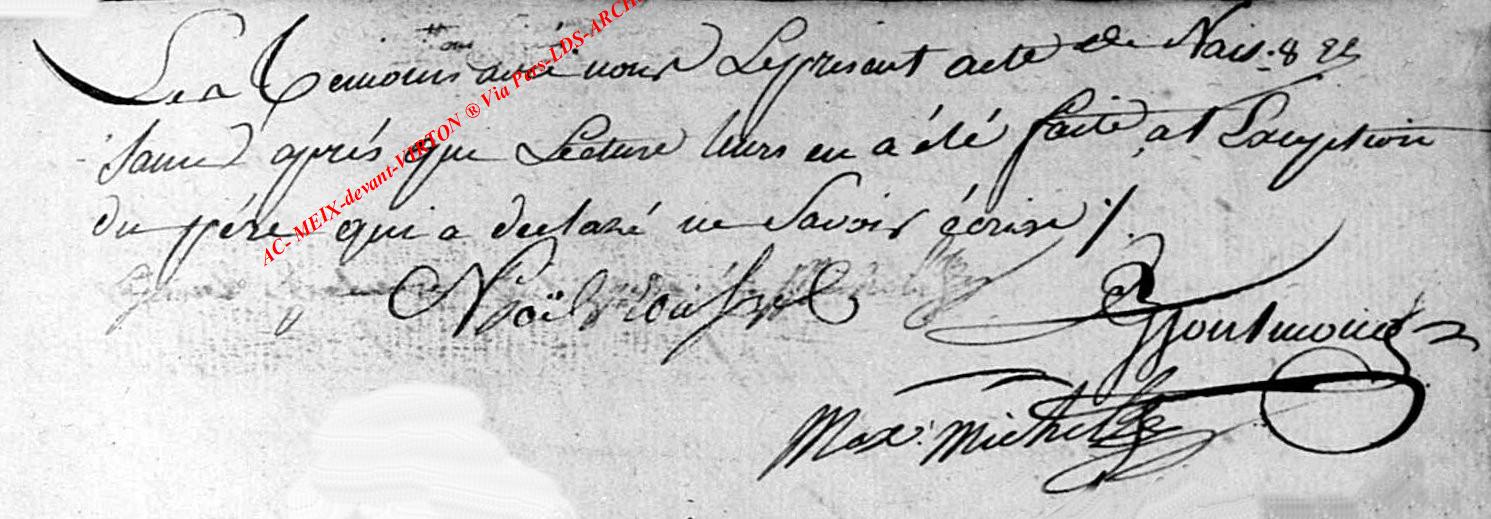 Les temoins avec nous le present acte de Nais-
sance après que Lecture leurs en a été faite, at L'aception
du père qui a declaré ne Savoir écrire /.
Noël rousel
Montmond
Max: Michel
AC- MEIX-devant-VIRTON ® Via Pers-LDS-ARCH